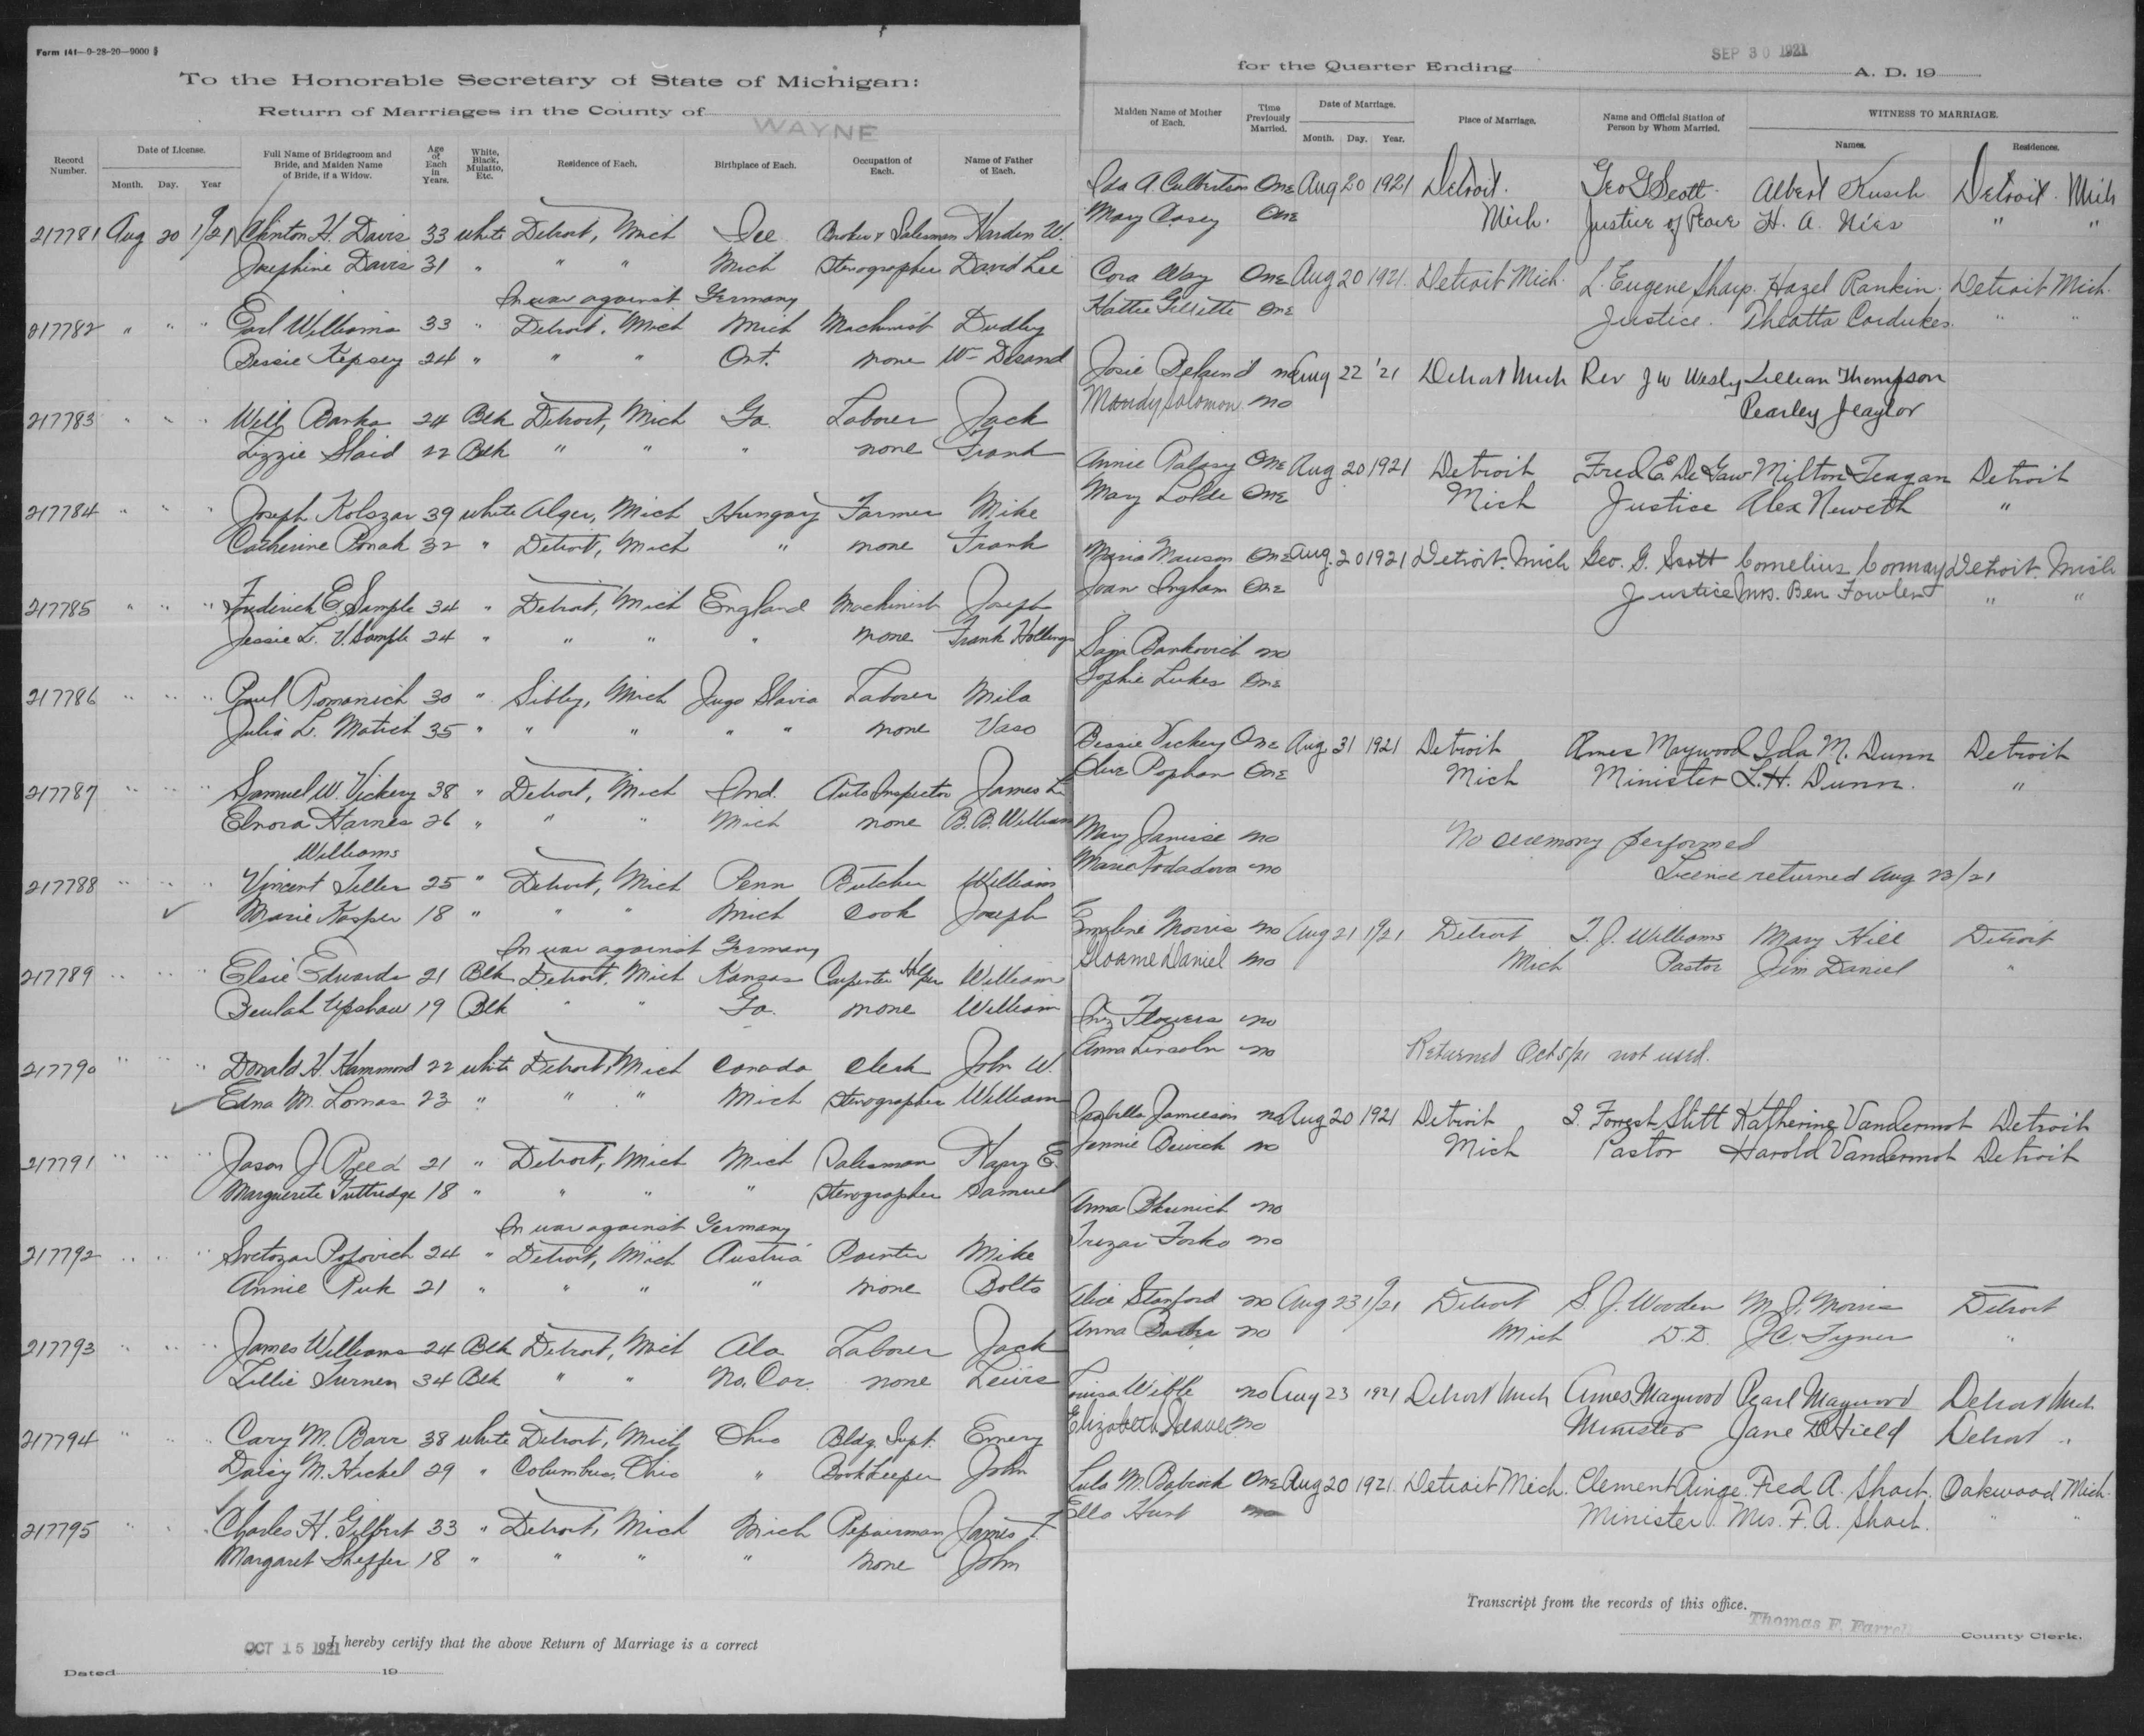 Form 141—9-28-20—9000
To the Honorable Secretary of State of Michigan:
Return of Marriages in the County of
WAYNE
Record Number.
Date of License.
Month. Day. Year
Full Name of Bridegroom and Bride, and Maiden Name of Bride, if a Widow.
Age of Each in Years.
White, Black, Mulatto, Etc.
Residence of Each.
Birthplace of Each.
Occupation of Each.
Name of Father of Each.
217781 Aug 20 1921 Clinton H. Davis 33 white Detroit, Mich Broker & Salesman Harden W.
Josephine Davis 31 " " " Mich Stenographer David Lee
In war against Germany
217782 " " " Earl Williams 33 " Detroit, Mich Mich Machinist Dudley
Bessie Kepsey 24 " " " Ont. none Wm
217783 " " " Will Banks 24 Blk Detroit, Mich Ga. Laborer Jack
Lizzie Slaid 22 Blk " " " none Frank
217784 " " " Joseph Kolszar 39 white Alger, Mich Hungary Farmer Mike
Catherine Ponak 32 " Detroit, Mich " none Frank
217785 " " " Frederick E. Sample 34 " Detroit, Mich England Machinist Joseph
Jessie L. V. Sample 24 " " " " none Frank
217786 " " " Paul Romanich 30 " Sibley, Mich Jugo Slavia Laborer Mila
Julia L. Matich 35 " " " " " none Vaso
217787 " " " Samuel W. Vickery 38 " Detroit, Mich Ind. Auto Inspector James L
Elnora Harnes 26 " " " Mich none B. B. William
Williams
217788 " " " Vincent Teller 25 " Detroit, Mich Penn Butcher William
Marie Kasper 18 " " " Mich Cook Joseph
In war against Germany
217789 " " " Elsie Edwards 21 Blk Detroit, Mich Kansas Carpenter Helper William
Beulah Upshaw 19 Blk " " Ga. none William
217790 " " Donald H. Hammond 22 white Detroit, Mich Canada Clerk John W.
Edna M. Lomas 23 " " " Mich Stenographer William
217791 " " " Jason J Reed 21 " Detroit, Mich Mich Salesman Harry E.
Marguerite Tuttredge 18 " " " " Stenographer Samuel
In war against Germany
217792 " " " Svetozar Popovich 24 " Detroit, Mich Austria Painter Mike
Annie Ruk 21 " " " " none Bolto
217793 " " " James Williams 24 Blk Detroit, Mich Ala Laborer Jack
Lillie Turner 34 Blk " " No. Car. none Lewis
217794 " " " Cary M. Barr 38 white Detroit, Mich Ohio Bldg. Supt. Emery
Daisy M. Hickel 29 " Columbus, Ohio " Bookkeeper John
217795 " " " Charles H. Gilbert 33 " Detroit, Mich Mich Repairman James T
Margaret Sheffer 18 " " " " none John
I hereby certify that the above Return of Marriage is a correct
OCT 15 1921
Dated 19
SEP 30 1921
for the Quarter Ending A. D. 19
Maiden Name of Mother of Each.
Time Previously Married.
Date of Marriage.
Month. Day. Year.
Place of Marriage.
Name and Official Station of Person by Whom Married.
WITNESS TO MARRIAGE.
Names. Residences.
Ida A. Culbertson One Aug 20 1921 Detroit. Geo G Scott Albert Kusch Detroit Mich
Mary Casey One Mich. Justice of Peace H. A. Nies " "
Cora Way One Aug 20 1921. Detroit Mich. L. Eugene Sharp. Hazel Rankin. Detroit Mich.
Hattie Gillette One Justice. Theatta Cordukes. " "
Josie no Aug 22 '21 Detroit Mich Rev J W Wesly Lillian Thompson
Mandy Solomon no Pearley J Taylor
Annie Palasy One Aug 20 1921 Detroit Fred E. De Gaw Milton Teagan Detroit
Mary One Mich Justice Alex Neweth "
Maria Mauson One Aug. 20 1921 Detroit. Mich Geo. G. Scott Cornelius Cormay Detroit Mich
Joan Ingham One Justice Mrs. Ben Fowler " "
Saja Bankovich no
Sophie Lukes One
Bessie Vickery One Aug 31 1921 Detroit Ames Maywood Ida M. Dunn Detroit
Olive Popham One Mich Minister L. H. Dunn. "
Mary Janisse no No ceremony performed
Maria Vodadova no Licence returned Aug 23/21
Emeline Morris no Aug 21 1921 Detroit T. J. Williams Mary Hill Detroit
Daniel no Mich Pastor Jim Daniel "
Inez Flowers no
Anna Lincoln no Returned Oct 5/21 not used.
Isabella Jamieson no Aug 20 1921 Detroit S. Forrest Stitt Katherine Vandermot Detroit
Jennie no Mich Pastor Harold Vandermot Detroit
Anna no
Trezai Forko no
Alice Stanford no Aug 23 1921 Detroit S. J. Wooden M. J. Morris Detroit
Anna no Mich D.D. J C. Tyner "
Louisa Wible no Aug 23 1921 Detroit Mich Ames Maywood Pearl Maywood Detroit Mich
Elizabeth no Minister Jane D Field Detroit "
Lula M. Babcock One Aug 20 1921. Detroit Mich. Clement Ainge. Fred A. Short. Oakwood Mich.
Ella Hurst Minister. Mrs. F. A. Short. " "
Transcript from the records of this office.
Thomas F. Farrell
County Clerk.